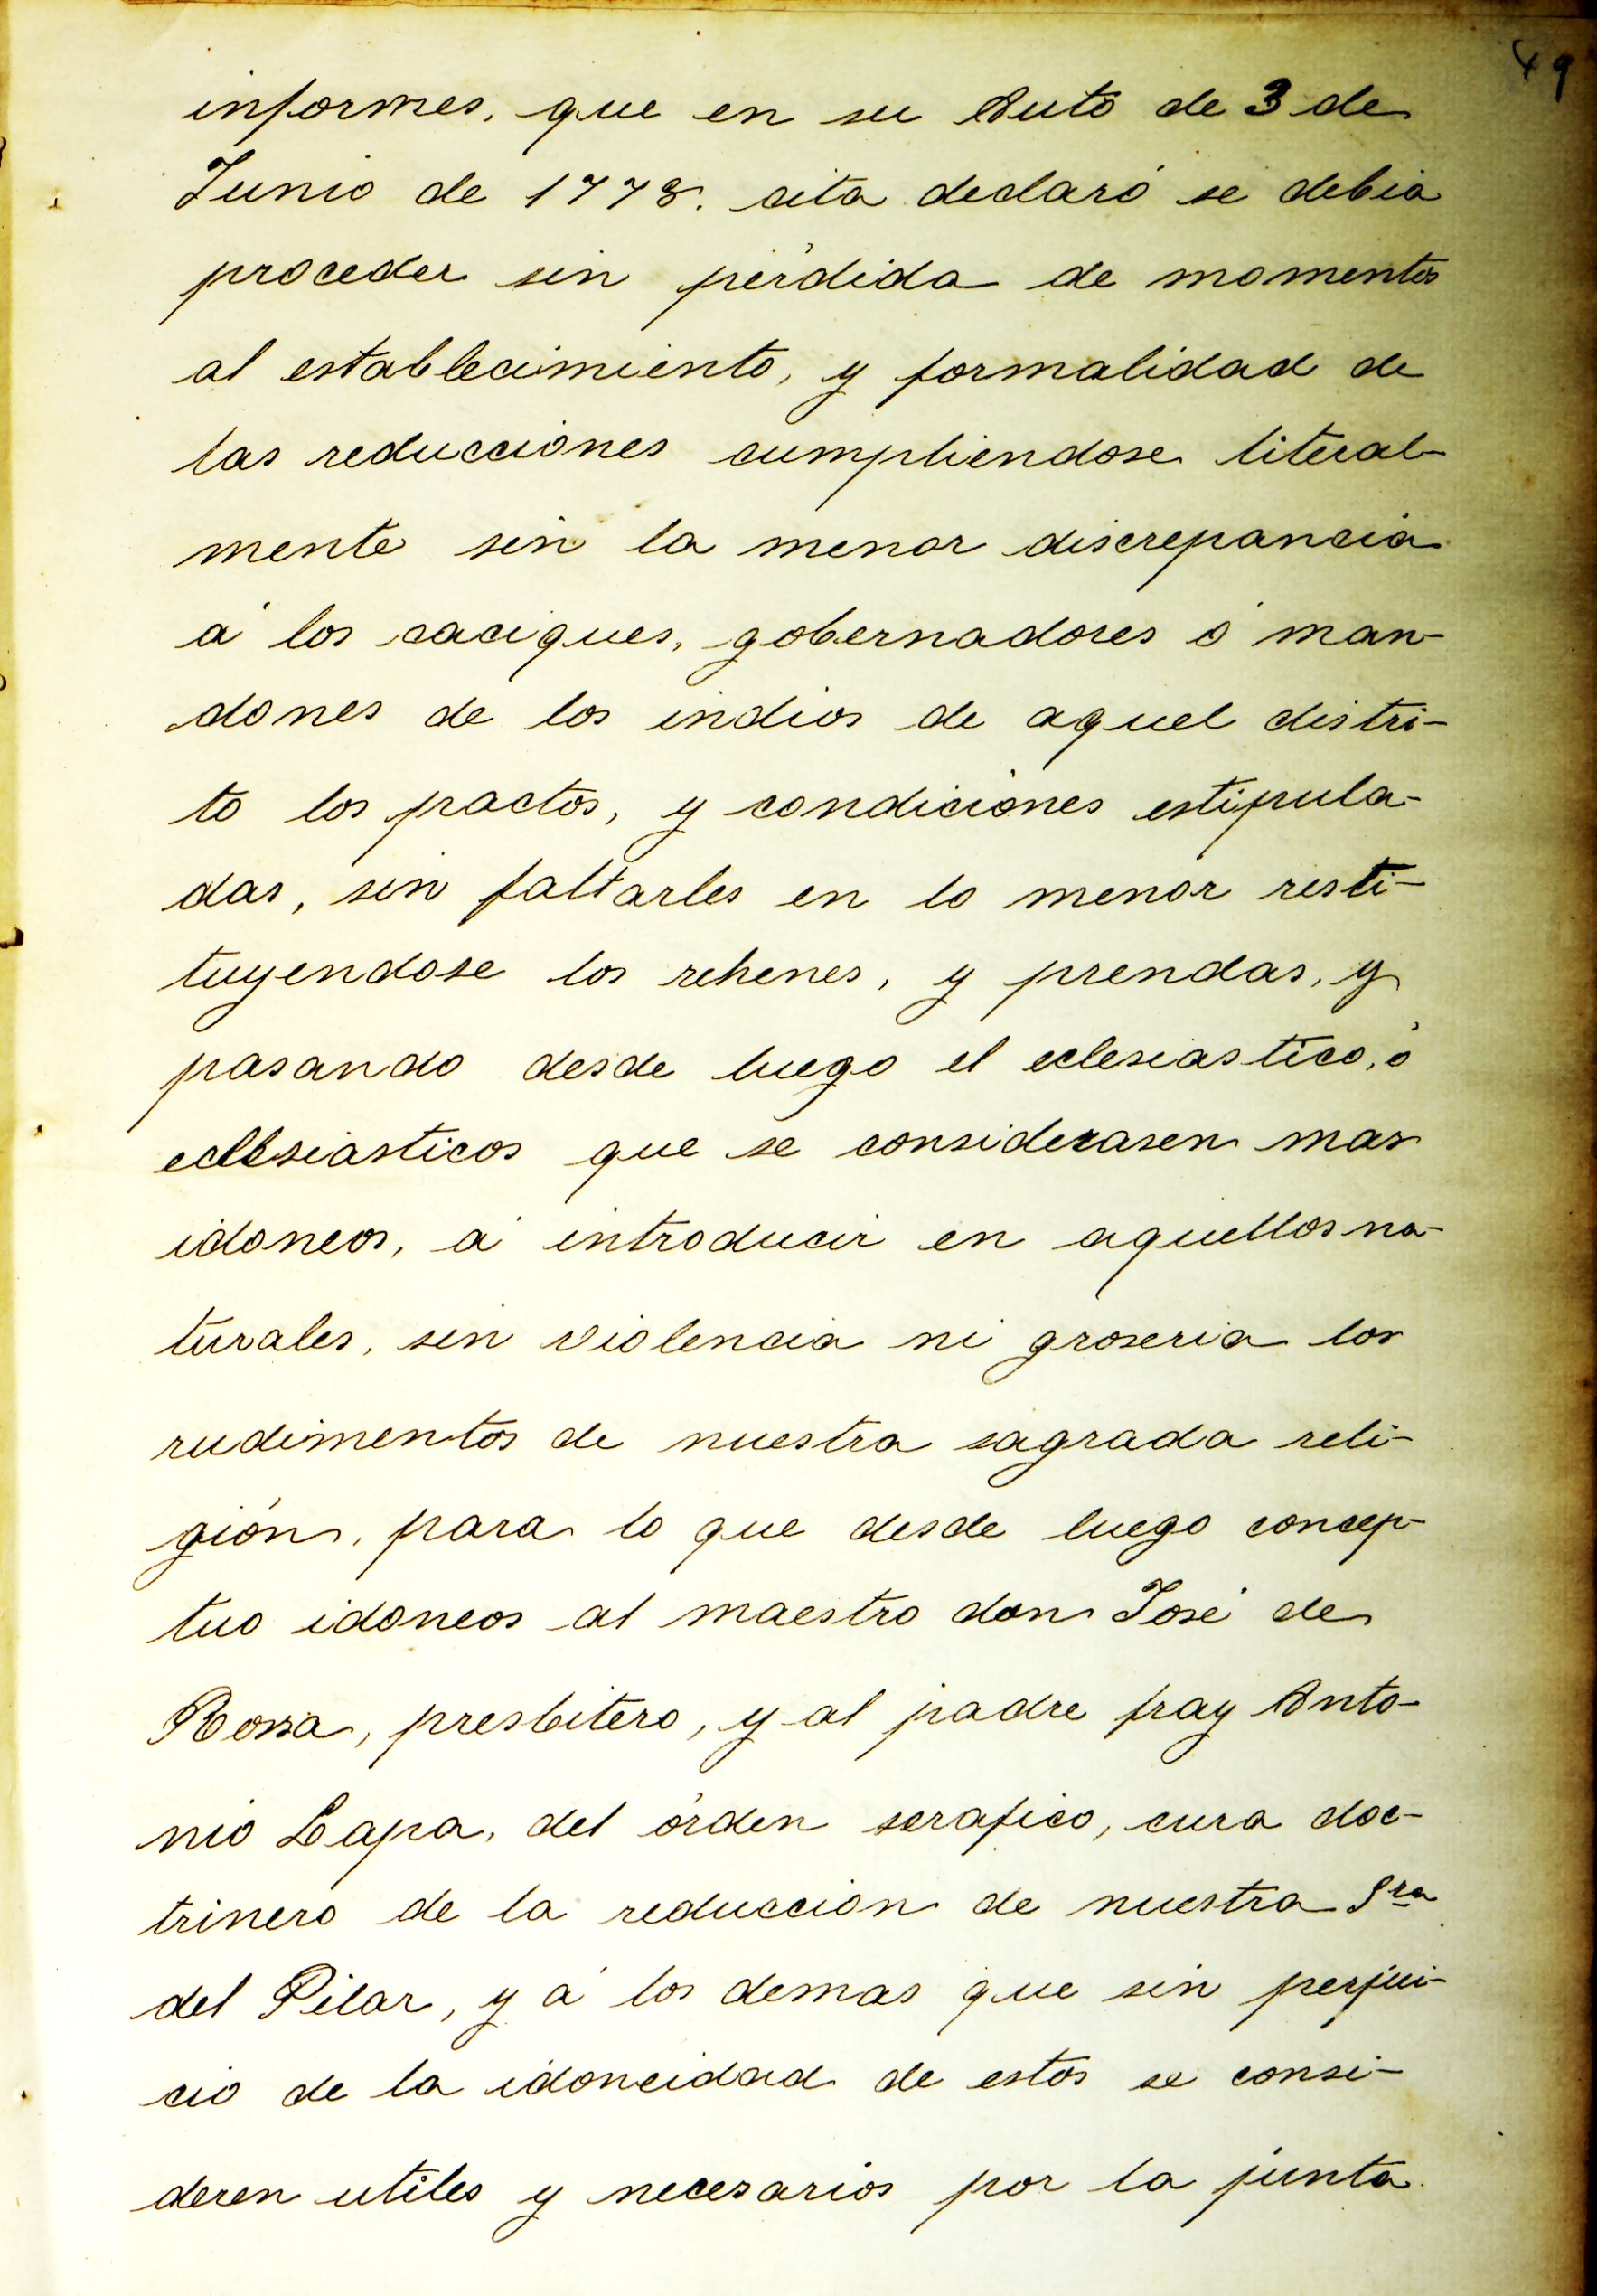 49
informes, que en su Auto de 3 de
Junio de 1778. cita declaró se debia
proceder sin pérdida de momentos
al establecimiento, y formalidad de
las reducciones cumpliendose literal-
mente sin la menor discrepancia
á los caciques, gobernadores ó man-
dones de los indios de aquel distri-
to los pactos, y condiciones estipula-
das, sin faltarles en lo menor resti-
tuyendose los rehenes, y prendas, y
pasando desde luego el eclesiastico, ó
eclesiasticos que se considerasen mas
idoneos, á introducir en aquellos na-
turales, sin violencia ni groseria los
rudimentos de nuestra sagrada reli-
gión, para lo que desde luego concep-
tuo idoneos al maestro don José de
presbitero, y al padre fray Anto-
nio Lapa, del órden serafico, cura doc-
trinero de la reduccion de nuestra Sra
del Pilar, y á los demas que sin perjui-
cio de la idoneidad de estos se consi-
deren utiles y necesarios por la junta